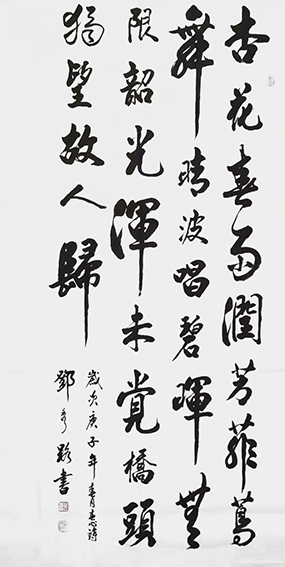 杏花春雨潤芳菲鶯
舞晴波唱碧暉無
限韶光渾未覺橋頭
獨望故人歸
歲次庚子年
鄧 路書